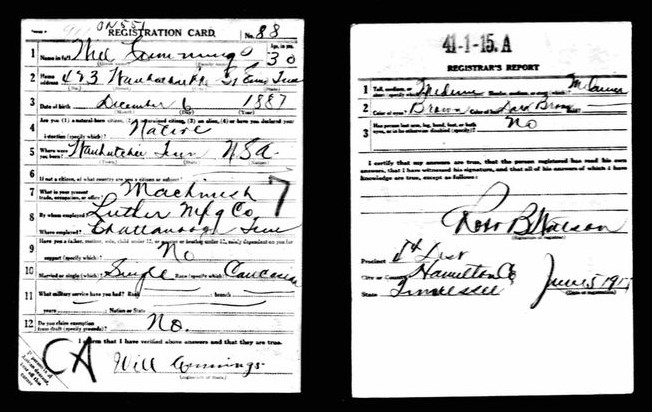 REGISTRATION CARD. No. 88
1 Name in full Will Cummings Age, in yrs. 30
2 Home address 423 St Elmo Tenn
3 Date of birth December 6 1887
4 Are you (1) a natural-born citizen, (2) a naturalized citizen, (3) an alien, (4) or have you declared your
intention (specify which)? Native
5 Where were you born? Wauhatchie Tenn USA
6 If not a citizen, of what country are you a citizen or subject?
7 What is your present trade, occupation, or office? Machinist 7
8 By whom employed? Luther Mfg Co
Where employed? Chattanooga Tenn
9 Have you a father, mother, wife, child under 12, or a sister or brother under 12, solely dependent on you for
support (specify which)? No
10 Married or single (which)? Single Race (specify which)? Caucasian
11 What military service have you had? Rank branch
years Nation or State
12 Do you claim exemption from draft (specify grounds)? No.
I affirm that I have verified above answers and that they are true.
CA
Will Cummings
41-1-15. A
REGISTRAR'S REPORT
1 Tall, medium, or short (specify which)? Medium Slender, medium, or stout (which)? Medium
2 Color of eyes? Brown Color of hair? Dark Brown
3 Has person lost arm, leg, hand, foot, or both eyes, or is he otherwise disabled (specify)? No
I certify that my answers are true, that the person registered has read his own
answers, that I have witnessed his signature, and that all of his answers of which I
have knowledge are true, except as follows:
Ross B Watson
Precinct
City or County Hamilton Co
State Tennessee June 5 1917